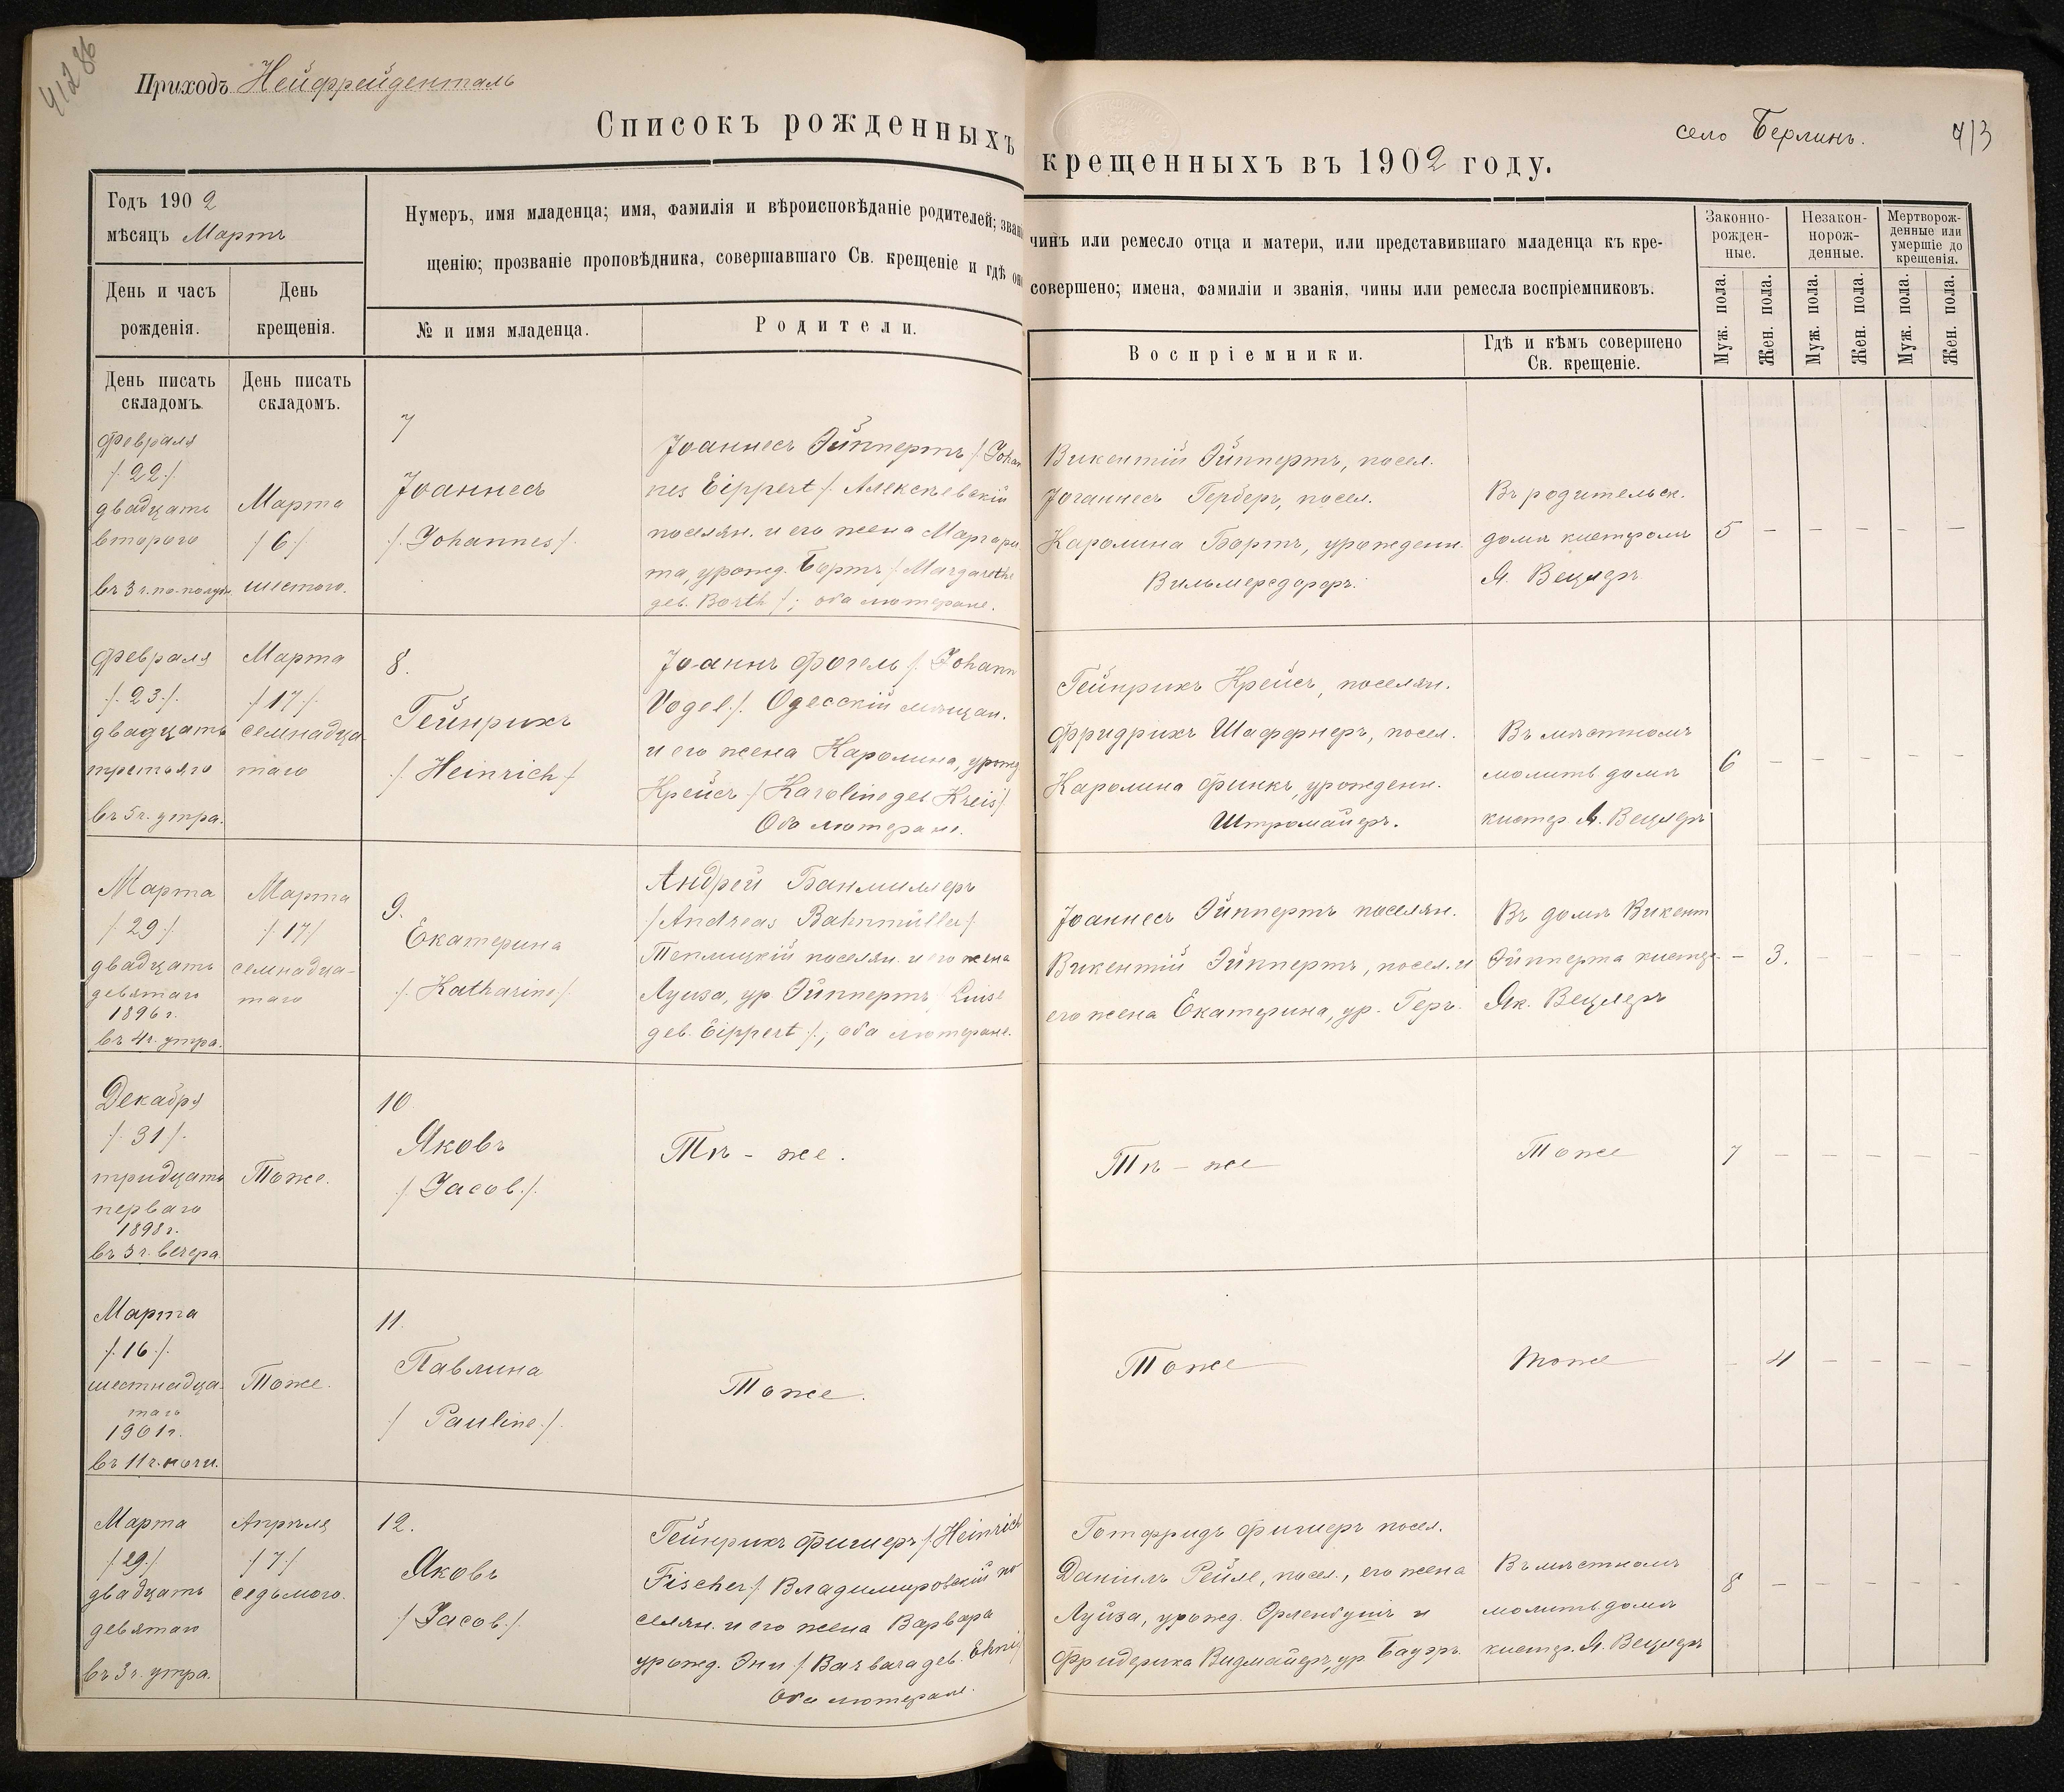 41286
Приходъ Нейфрейденталь
Списокъ рожденныхъ
Годъ 1902
мѣсяцъ Мартъ
Нумеръ, имя младенца; имя, фамилія и вѣроисповѣданіе родителей; зван
щенію; прозваніе проповѣдника, совершавшаго Св. крещеніе и гдѣ он
День и часъ
рожденія.
День
крещенія.
№ и имя младенца.
Родители.
День писать
складомъ.
День писать
складомъ.
Февраля
/.22./
двадцать
второго
въ 3 ч. по-полудн.
Марта
/6/
шестого.
7
Іоаннесъ
/.Johannes/.
Іоаннесъ Эйппертъ /Johan
nes Eippert/. Алексѣевскій
поселян. и его жена Маргари
та, урожд. Бортъ /Margarethe
geb. Borth/; оба лютеране.
Февраля
/.23./.
двадцать
третьяго
въ 5 ч. утра.
Марта
/17/.
семнадца
таго
8.
Гейнрихъ
/.Heinrich/
Іоаннъ Фогель /.Johann
Vogel./. Одесскій мѣщан.
и его жена Каролина, урожд
Крейсъ /Karoline geb Kreis/
Оба лютеране.
Марта
/29/
двадцать
девятаго
1896 г.
въ 4 ч. утра.
Марта
/17/
семнадца-
таго
9.
Екатерина
/.Katharine/.
Андрей Банмиллеръ
/Andreas Bahnmüller/
Теплицкій поселян. и его жена
Луиза, ур. Эйппертъ /Luise
geb. Eippert/.; оба лютеране.
Декабря
/.31/.
тридцать
перваго
1898 г.
въ 3 ч. вечера.
Тоже.
10
Яковъ
/Jacob./.
Тѣ - же.
Марта
/.16./.
шестнадца
таго
1901 г.
въ 11 ч. ночи.
Тоже.
11.
Павлина
/ Pauline./.
Тоже.
Марта
/29./
двадцать
девятаго
въ 3 ч. утра.
Апрѣля
/7/
седьмого.
12.
Яковъ
/Jacob./.
Гейнрихъ Фишеръ /Heinrich
Fischer/ Владимировскій по
селян. и его жена Варвара
урожд. Эни /Barbara geb. Ehni/
Оба лютеране.
село Берлинъ.
413
крещенныхъ въ 1902 году.
чинъ или ремесло отца и матери, или представившаго младенца къ кре-
совершено; имена, фамиліи и званія, чины или ремесла воспріемниковъ.
Воспріемники.
Гдѣ и кѣмъ совершено
Св. крещеніе.
Законно-
рожден-
ные.
Незакон-
норож-
денные.
Мертворож-
денные или
умершіе до
крещенія.
Муж. пола.
Жен. пола.
Муж. пола.
Жен. пола.
Муж. пола.
Жен. пола.
Викентій Эйппертъ, посел.
Іоганнесъ Герберъ, посел.
Каролина Бортъ, урожденн.
Вильмерсдорфъ.
Въ родительск.
домѣ кистромъ
Я. Вецлеръ
5 – – – – –
Гейнрихъ Крейсъ, поселян.
Фридрихъ Шаффнеръ, посел.
Каролина Финкъ, урожденн.
Штромайеръ.
Въ мѣстномъ
молитв. домѣ
кистер. Я. Вецлеръ
6 – – – – –
Іоаннесъ Эйппертъ поселян.
Викентій Эйппертъ, посел. и
его жена Екатерина, ур. Геръ.
Въ домѣ Викент
Эйпперта кистер.
Як. Вецлеръ
– 3. – – – –
Тѣ - же
Тоже
7 – – – – –
Тоже
тоже
– 4 – – – –
Готфридъ Фишеръ посел.
Даніилъ Рейле, посел., его жена
Луиза, урожд. Орленбушъ и
Фридерика Видмайеръ, ур. Бауэръ.
Въ мѣстномъ
молитв. домѣ
кистер. Я. Вецлеръ
8 – – – – –